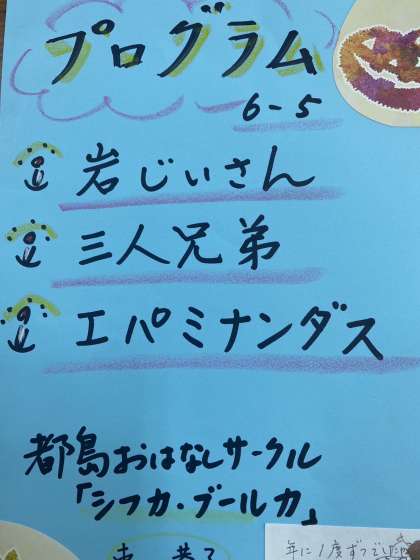 プログラム
6-5
岩じぃさん
三人兄弟
エパミナンダス
都島おはなしサークル
「シフカ・ブールカ」
年に1度ずつで